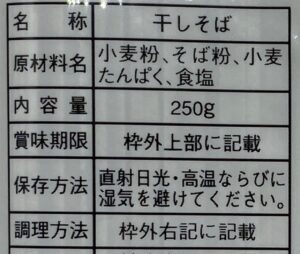 名称 干しそば
原材料名 小麦粉、そば粉、小麦
たんぱく、食塩
内容量 250g
賞味期限 枠外上部に記載
保存方法 直射日光・高温ならびに
湿気を避けてください。
調理方法 枠外右記に記載